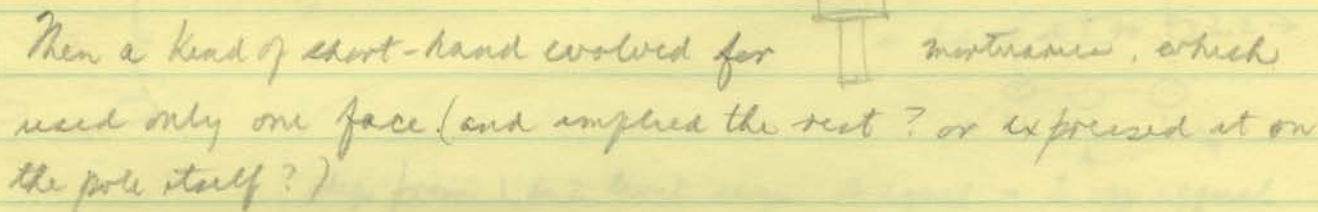 Then a kind of short-hand evolved for mortuaries, which
used only one face. (and implied the rest? or expressed it on
the pole itself?)